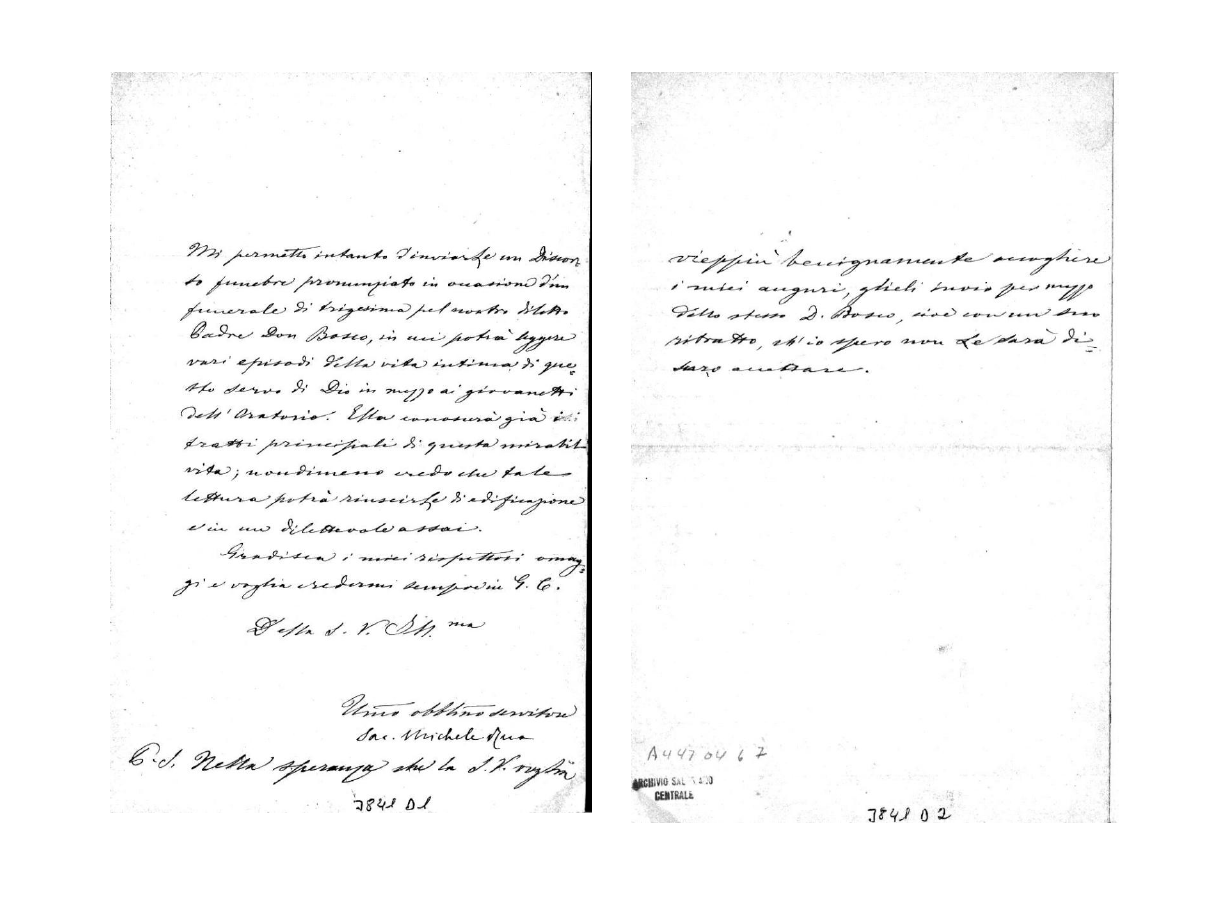 Mi permetto intanto d'inviarLe un Discor-
so funebre pronunziato in occasione d'un
funerale di trigesima pel nostro diletto
Padre Don Bosco, in cui potrà leggere
vari episodi della vita intima di que-
sto servo di Dio in mezzo ai giovanetti
dell'Oratorio. Ella conoscerà già i
tratti principali di questa mirabil
vita; nondimeno credo che tale
lettura potrà riuscirLe di edificazione
e in un dilettevole assai.
Gradisca i miei rispettosi omag-
gi e voglia credermi sempre in G. C.
Della S. V. Ill.ma
Umo obblmo servitore
Sac. Michele Rua
P. S. Nella speranza che la S. V. voglia
J841 D1
vieppiù benignamente accogliere
i miei auguri, glieli invio per mezzo
dello stesso D. Bosco, cioè con un suo
ritratto, ch'io spero non Le sarà di-
scaro accettare.
A4470467
ARCHIVIO SAL
CENTRALE
J841 D 2